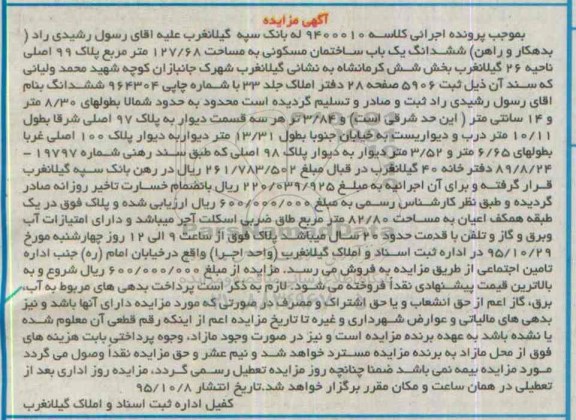 آگهی مزایده
بموجب پرونده اجرائی کلاسه ۹۴۰۰۰۱۰ له بانک سپه گیلانغرب علیه اقای رسول رشیدی راد (
بدهکار و راهن) ششدانگ یک باب ساختمان مسکونی به مساحت ۱۲۷/۶۸ متر مربع پلاک ۹۹ اصلی
ناحیه ۲۶ گیلانغرب بخش شش کرمانشاه به نشانی گیلانغرب شهرک جانبازان کوچه شهید محمد ولیانی
که سند آن ذیل ثبت ۵۹۰۶ صفحه ۲۸ دفتر املاک جلد ۳۳ با شماره چاپی ۹۶۴۳۰۴ ششدانگ بنام
اقای رسول رشیدی راد ثبت و صادر و تسلیم گردیده است محدود به حدود شمالا بطولهای ۸/۳۰ متر
و ۱۴ سانتی متر ( این حد شرقی است) و ۳/۸۴ متر هر سه قسمت دیوار به پلاک ۹۷ اصلی شرقا بطول
۱۰/۱۱ متر درب و دیواریست به خیابان جنوبا بطول ۱۳/۳۱ متر دیواربه دیوار پلاک ۱۰۰ اصلی غربا
بطولهای ۶/۶۵ متر و ۳/۵۲ متر دیوار به دیوار پلاک ۹۸ اصلی که طبق سند رهنی شماره ۱۹۷۹۷ –
۸۹/۸/۲۴ دفتر خانه ۴۰ گیلانغرب در قبال مبلغ ۲۶۱/۷۸۳/۵۰۲ ریال در رهن بانک سپه گیلانغرب
قرار گرفته و برای آن اجرائیه به مبلغ ۲۲۰/۰۳۹/۹۲۵ ریال بانضمام خسارت تاخیر روزانه صادر
گردیده و طبق نظر کارشناس رسمی به مبلغ ۶۰۰/۰۰۰/۰۰۰ ریال ارزیابی شده و پلاک فوق در یک
طبقه همکف اعیان به مساحت ۸۲/۸۰ متر مربع طاق ضربی اسکلت آجر میباشد و دارای امتیازات آب
وبرق و گاز و تلفن با قدمت حدود ۲۰ سال میباشد پلاک فوق از ساعت ۹ الی ۱۲ روز چهارشنبه مورخ
۹۵/۱۰/۲۹ در اداره ثبت اسناد و املاک گیلانغرب (واحد اجرا) واقع درخیابان امام (ره) جنب اداره
تامین اجتماعی از طریق مزایده به فروش می رسد. مزایده از مبلغ ۶۰۰/۰۰۰/۰۰۰ ریال شروع و به
بالاترین قیمت پیشنهادی نقداً فروخته می شود. لازم به ذکر است پرداخت بدهی های مربوط به آب،
برق، گاز اعم از حق انشعاب و یا حق اشتراک و مصرف در صورتی که مورد مزایده دارای آنها باشد و نیز
بدهی های مالیاتی و عوارض شهرداری و غیره تا تاریخ مزایده اعم از اینکه رقم قطعی آن معلوم شده
یا نشده باشد به عهده برنده مزایده است و نیز در صورت وجود مازاد، وجوه پرداختی بابت هزینه های
فوق از محل مازاد به برنده مزایده مسترد خواهد شد و نیم عشر و حق مزایده نقداً وصول می گردد
مورد مزایده بیمه نمی باشد ضمنا چنانچه روز مزایده تعطیل رسمی گردد، مزایده روز اداری بعد از
تعطیلی در همان ساعت و مکان مقرر برگزار خواهد شد.تاریخ انتشار ۹۵/۱۰/۸
کفیل اداره ثبت اسناد و املاک گیلانغرب